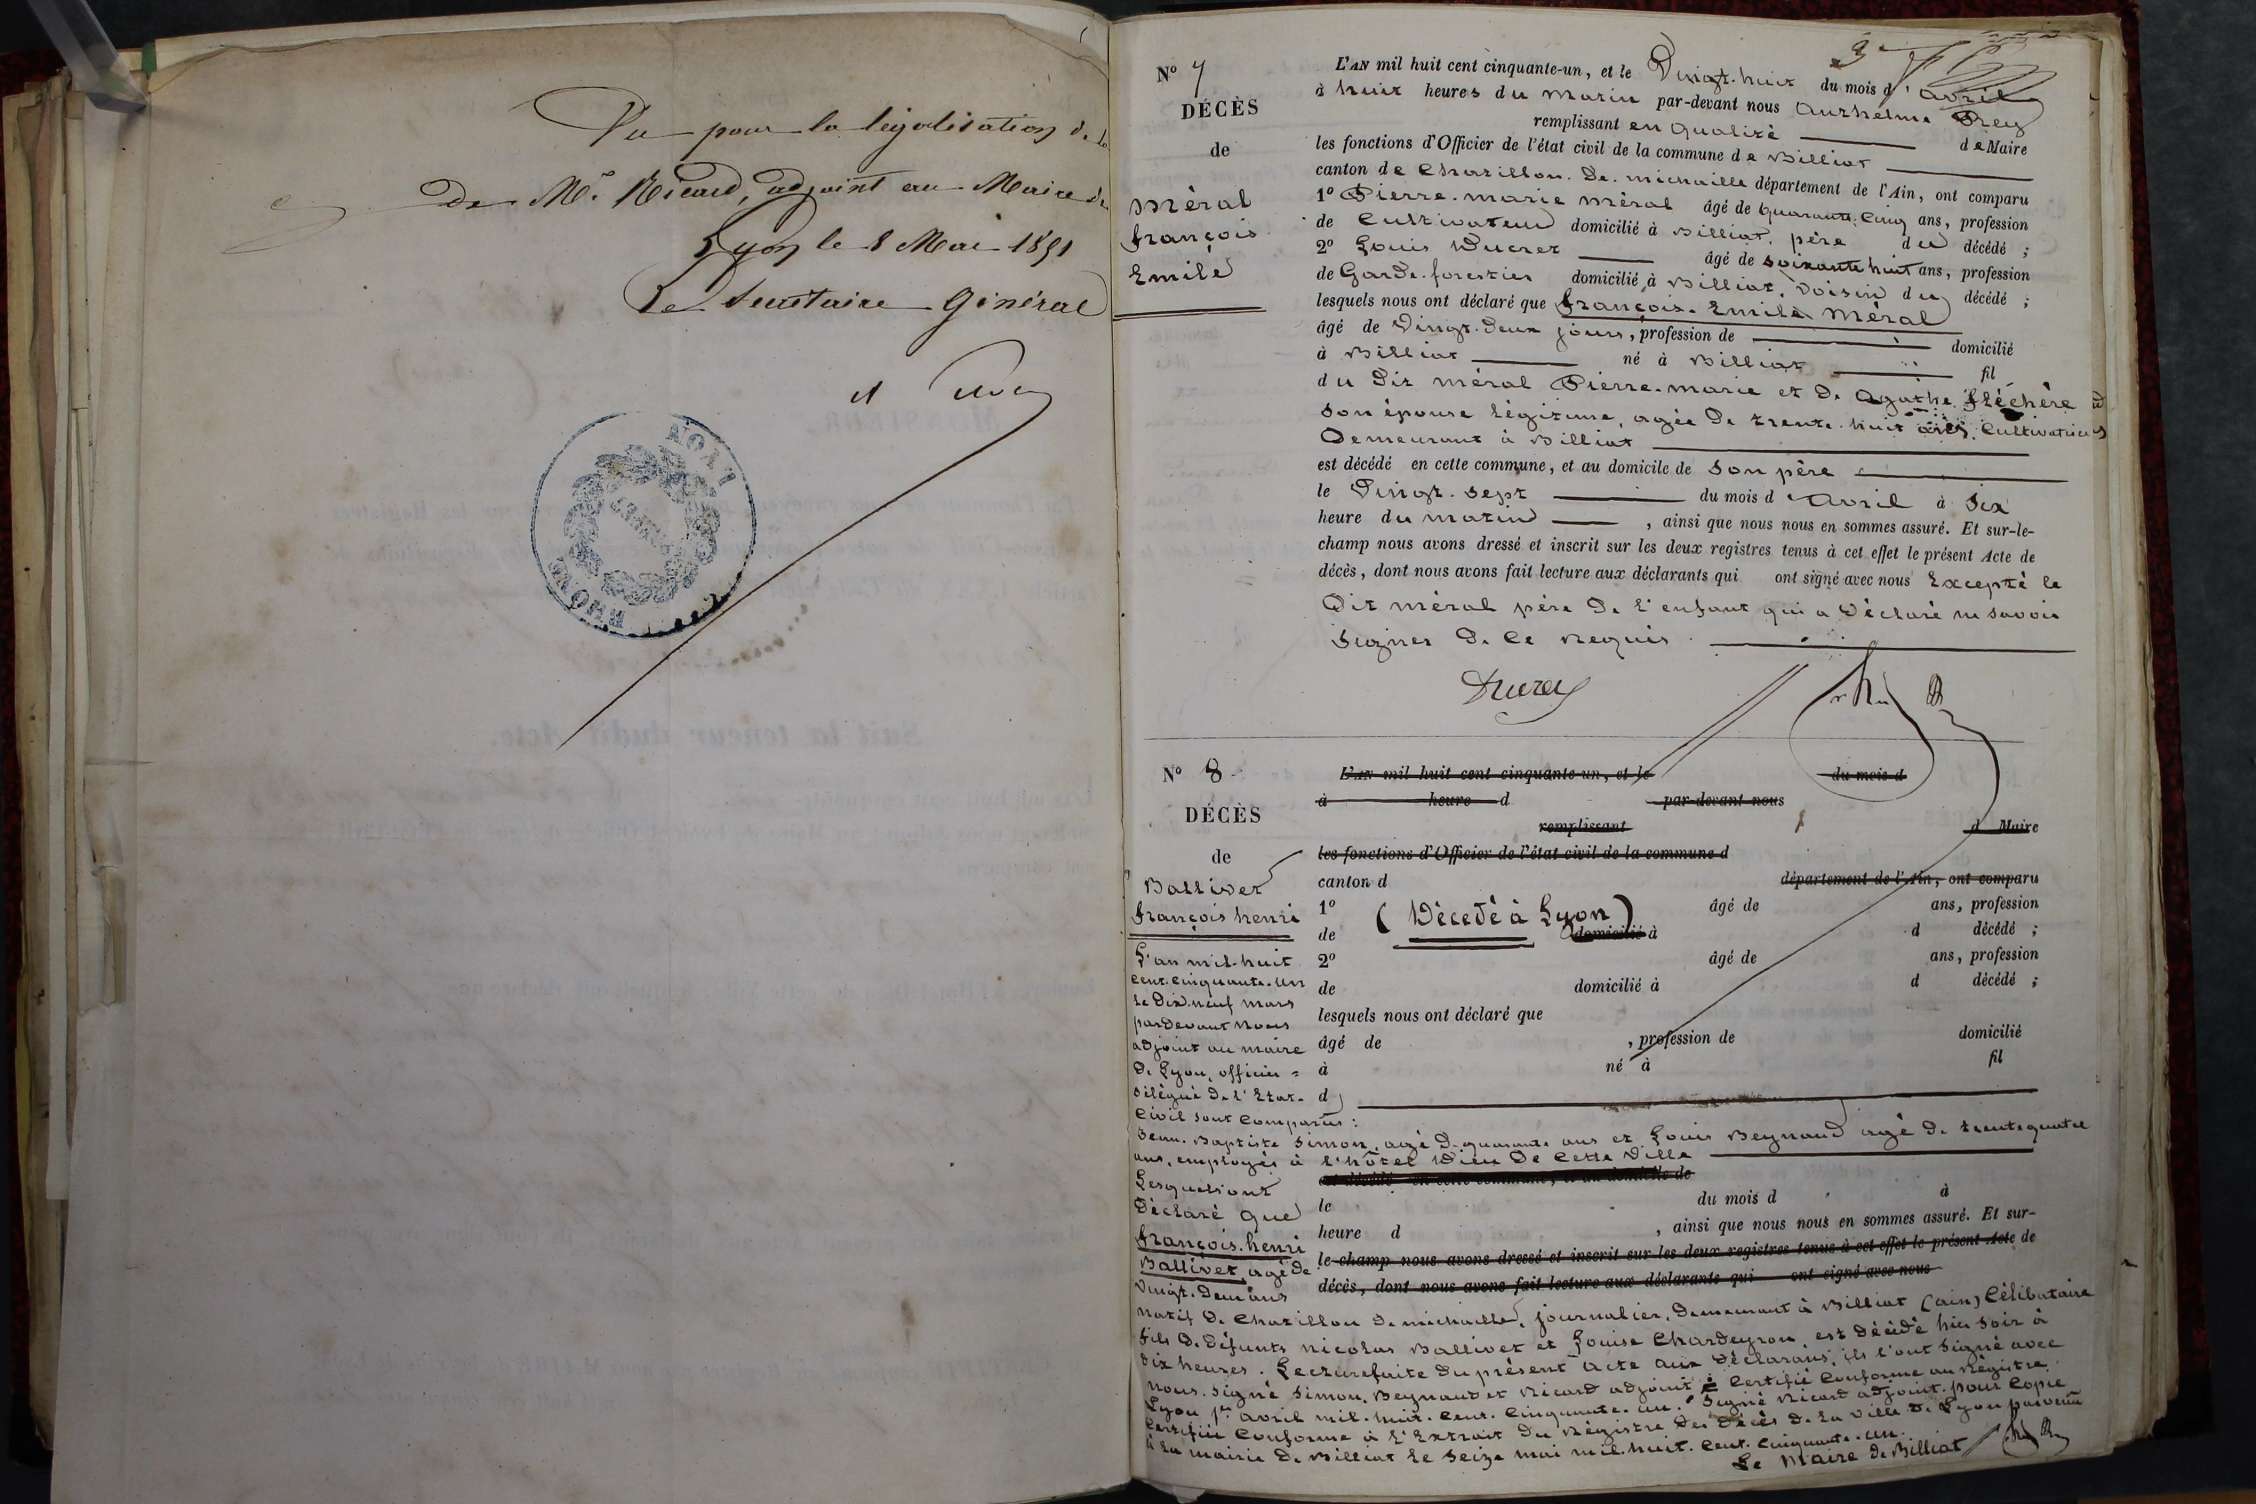 Vu pour la légalisation de la
de Mr. Ricard, adjoint au Maire de
Lyon le 8 Mai 1851
Le Secrétaire Général
RHONE
N° 7
DÉCÈS
de
Méral
françois
Emile
L'AN mil huit cent cinquante-un, et le Vingt-huit du mois d'avril
à huit heures du matin par-devant nous Anthelme Prey
remplissant en qualité de Maire
les fonctions d'Officier de l'état civil de la commune de Billiat
canton de Chatillon. De. michaille département de l'Ain, ont comparu
1° Pierre-marie méral âgé de quarante-cinq ans, profession
de Cultivateur domicilié à Billiat, père du décédé ;
2° Louis Ducret âgé de soixante huit ans, profession
de Garde-forestier domicilié à Billiat, voisin du décédé ;
lesquels nous ont déclaré que françois-Emile méral
âgé de Vingt-deux jours, profession de domicilié
à Billiat né à Billiat fil
du dit méral Pierre-marie et de Agathe fléchère
son épouse légitime, agée de trente-huit ans, Cultivatrice
Demeurant à Billiat
est décédé en cette commune, et au domicile de son père
le Vingt-sept du mois d'avril à Six
heure du matin, ainsi que nous nous en sommes assuré. Et sur-le-
champ nous avons dressé et inscrit sur les deux registres tenus à cet effet le présent Acte de
décès, dont nous avons fait lecture aux déclarants qui ont signé avec nous Excepté le
Dit méral père de l'enfant qui a déclaré ne savoir
signer de ce requis
Ducret
N° 8
DÉCÈS
de
Ballivet
françois henri
L'AN mil huit cent cinquante-un, et le du mois d
à heure d par-devant nous
remplissant d Maire
les fonctions d'Officier de l'état civil de la commune d
canton d département de l'Ain, ont comparu
1° (Décédé à Lyon) âgé de ans, profession
de domicilié à d décédé ;
2° âgé de ans, profession
de domicilié à d décédé ;
lesquels nous ont déclaré que
âgé de , profession de domicilié
à né à fil
d
L'an mil-huit
cent-cinquante-un
le dix-neuf mars
pardevant nous
adjoint au maire
de Lyon, officier
délégué de l'Etat-
Civil sont comparus :
Jean-Baptiste Simon, agé de quarante ans et Louis Beynaud agé de trente quatre
ans, employés à l'hôtel Dieu de cette Ville
est décédé en cette commune, et au domicile de
Lesquels ont
Déclaré que
françois-henri
Ballivet, agé de
Vingt-deux ans
le du mois d à
heure d , ainsi que nous nous en sommes assuré. Et sur-
le-champ nous avons dressé et inscrit sur les deux registres tenus à cet effet le présent Acte de
décès, dont nous avons fait lecture aux déclarants qui ont signé avec nous
natif de Chatillon de michaille, journalier, demeurant à Billiat (ain) Célibataire
fils de défunts nicolas Ballivet et Louise Chardeyron, est décédé hier soir à
dix heures. Lecture faite du présent acte aux Déclarans, ils l'ont signé avec
nous. signé Simon, Beynaud et Ricard adjoint. Certifié Conforme au Régistre.
Lyon 1er avril mil-huit-cent-cinquante-un. Signé Ricard adjoint. pour copie
certifiée Conforme à l'Extrait du Régistre des décès de la ville de Lyon parvenu
à la mairie de Billiat le Seize mai mil-huit-cent-cinquante-un.
Le Maire de Billiat